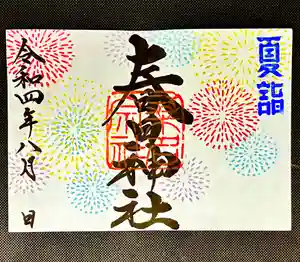 夏詣
神社
令和四年八月 日